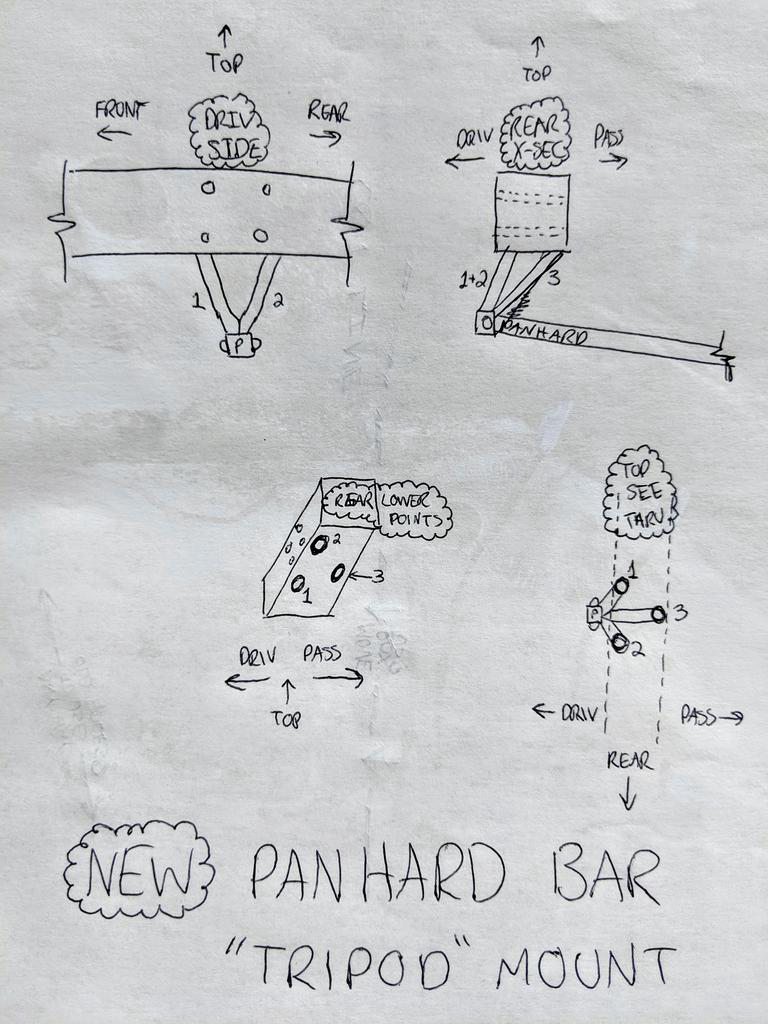 TOP
FRONT
DRIV
SIDE
REAR
1
2
P
TOP
DRIV
REAR
X-SEC
PASS
1+2
3
PANHARD
REAR
LOWER
POINTS
2
1
3
DRIV PASS
TOP
TOP
SEE
TARU
1
P
3
2
DRIV
PASS
REAR
NEW PANHARD BAR
"TRIPOD" MOUNT